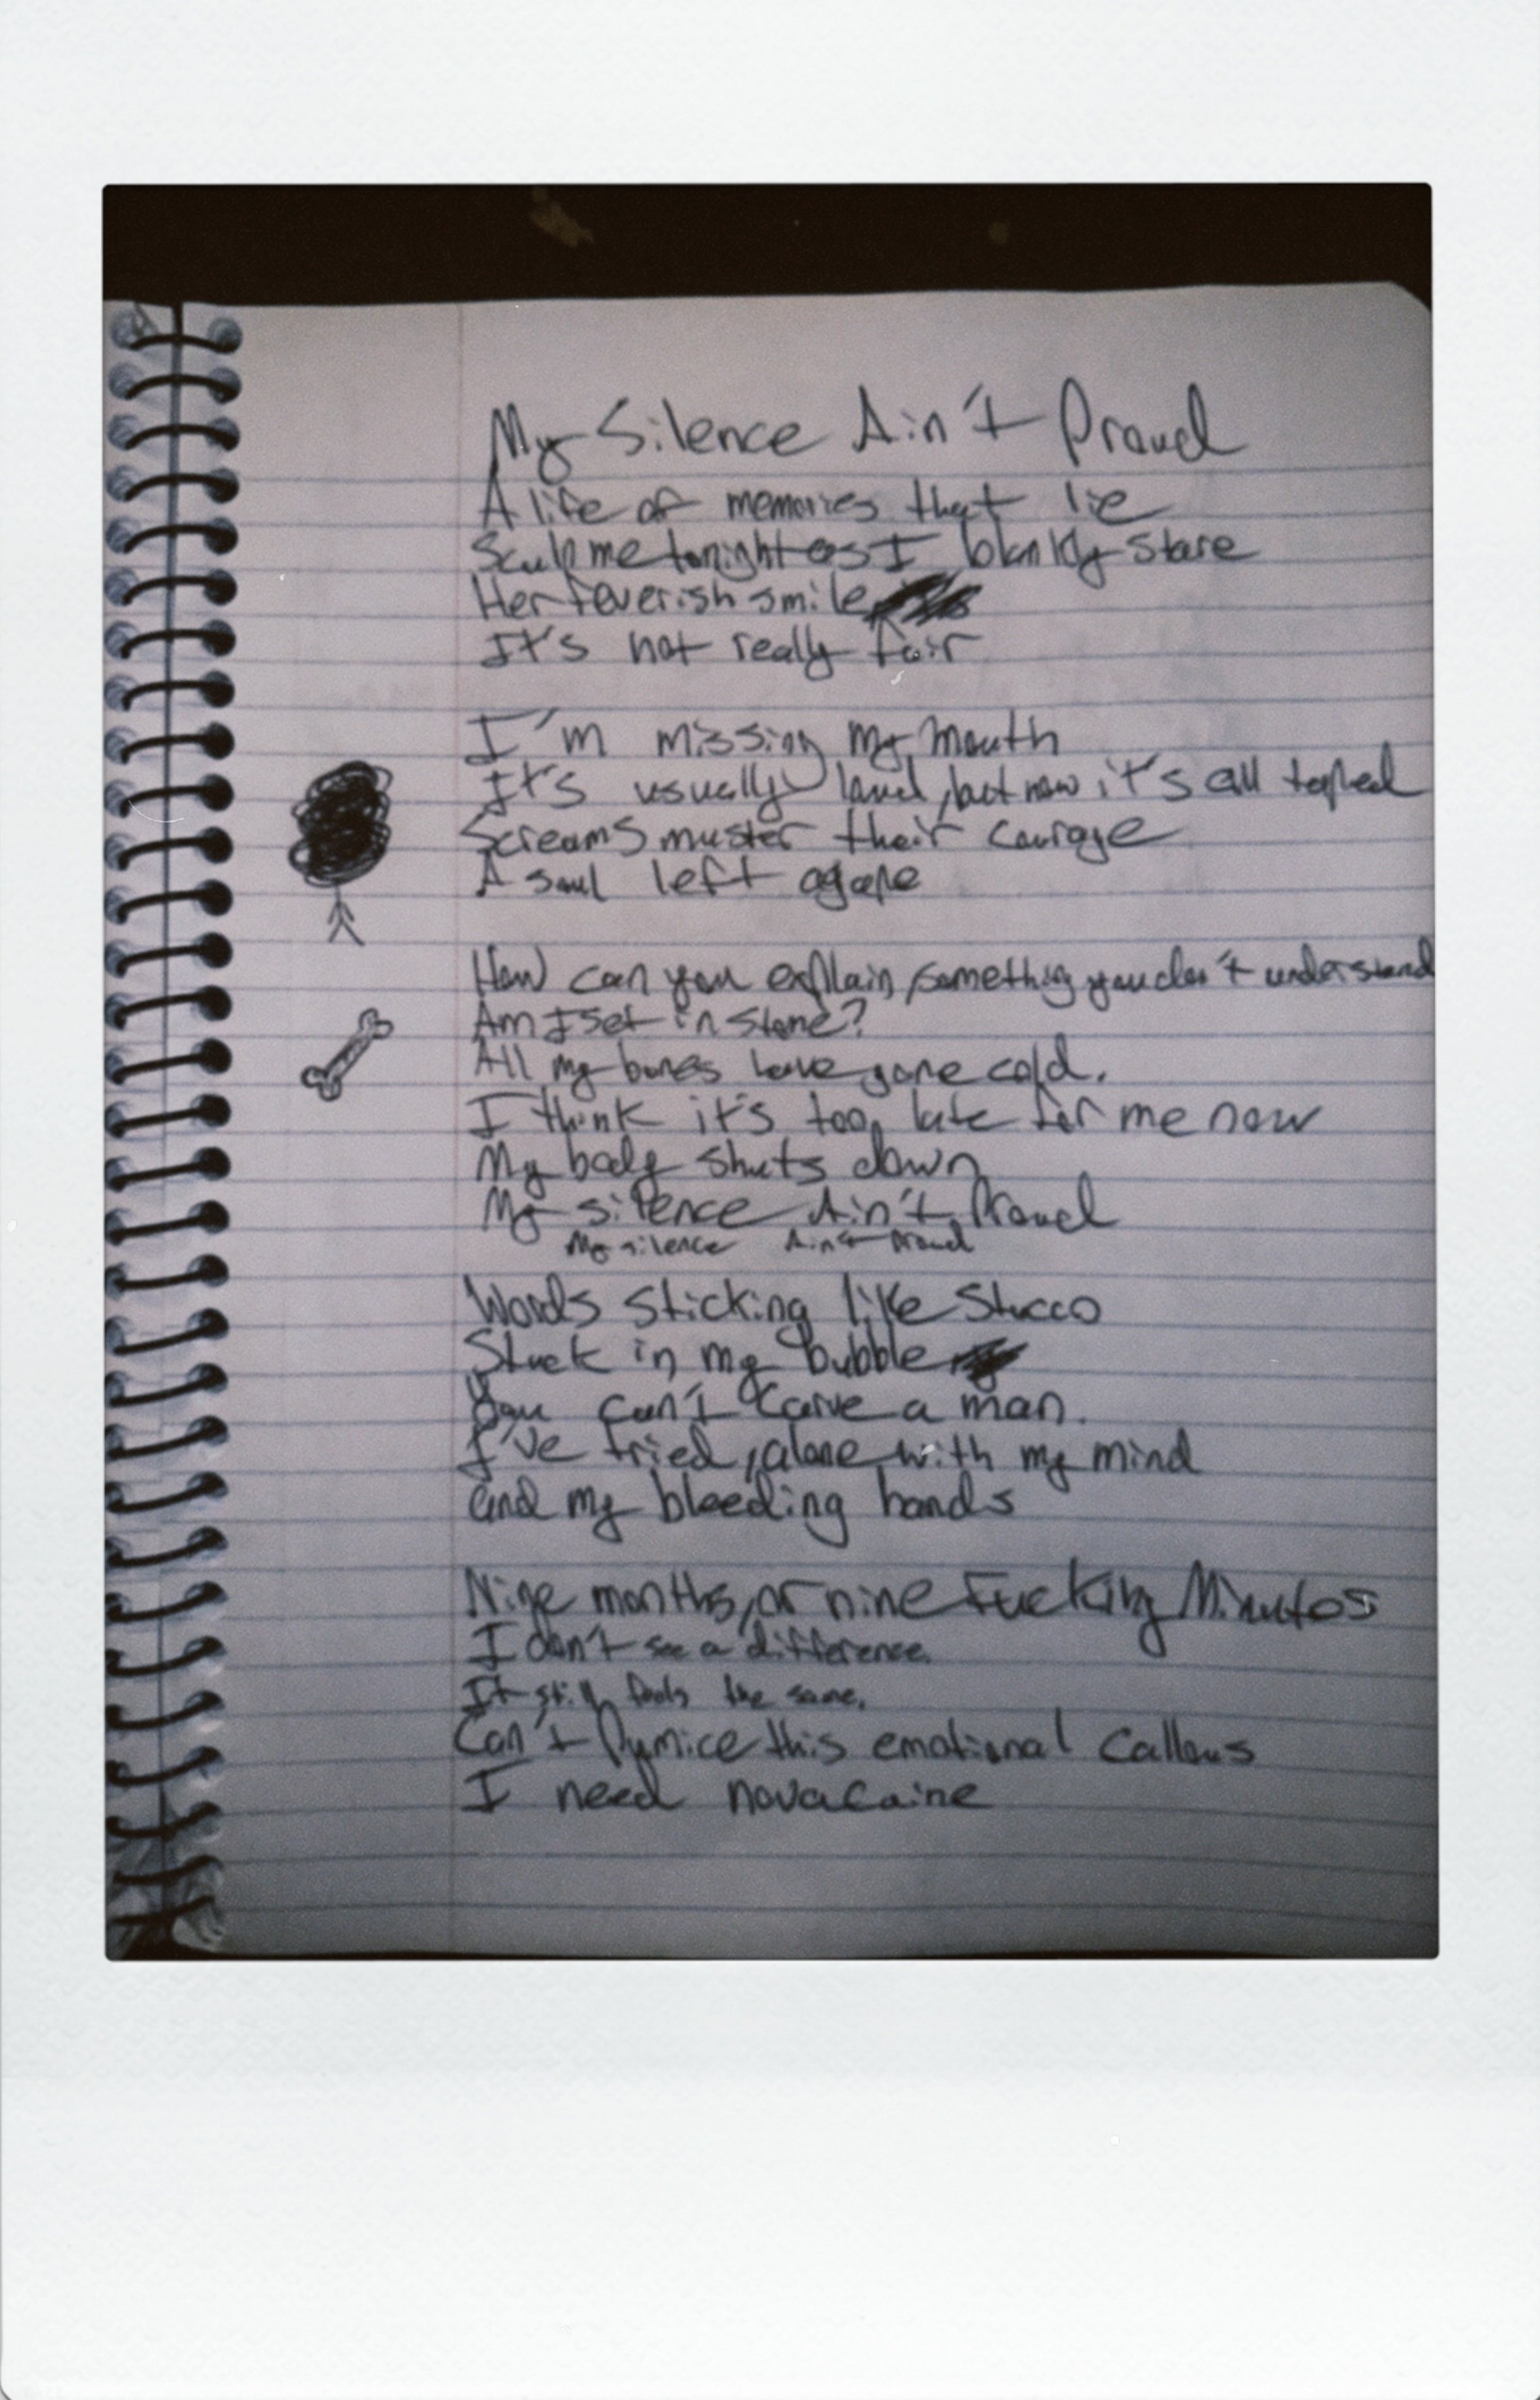 My Silence Ain't Proud
A life of memories that lie
Sculp me tonight as I blankly stare
Her feverish smile
It's not really fair
I'm missing my mouth
It's usually loud, but now it's all taped
Screams muster their courage
A soul left agape
How can you explain, something you don't understand
Am I set in stone?
All my bones have gone cold.
I think it's too late for me now
My body shuts down
My silence Ain't Proud
My silence Ain't Proud
Words sticking like Stucco
Stuck in my bubble
You can't carve a man.
I've tried, alone with my mind
and my bleeding hands
Nine months, or nine Fucking Minutes
I don't see a difference.
It still feels the same.
Can't Pumice this emotional Callous
I need novacaine